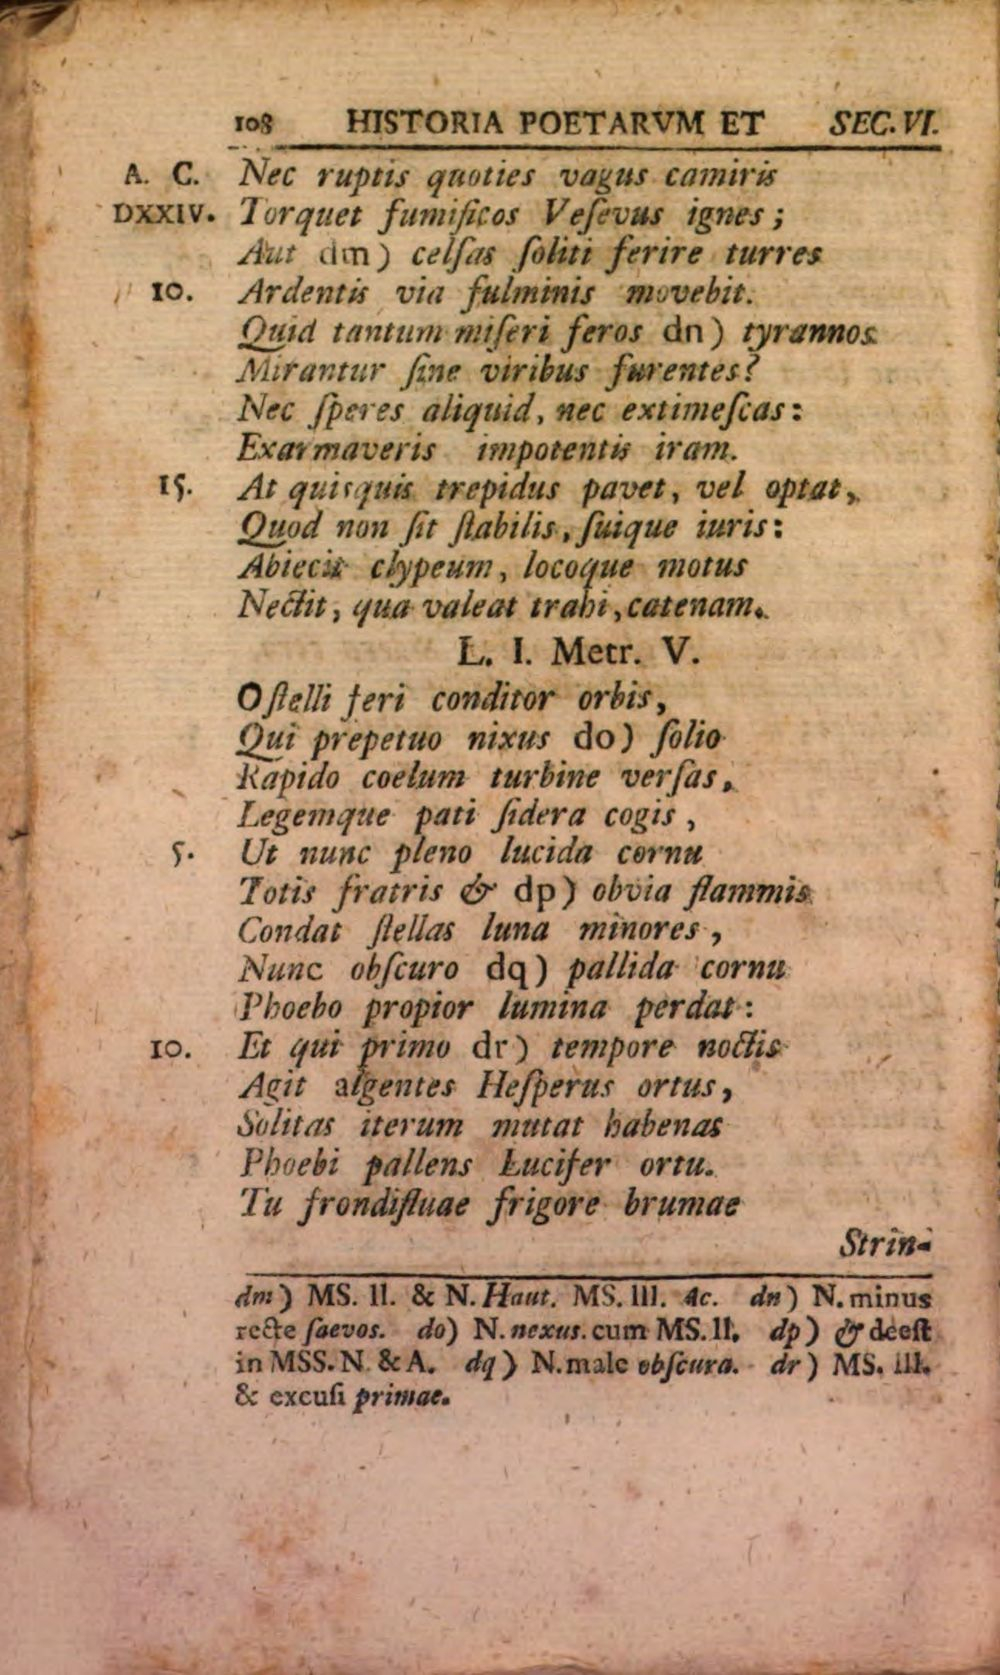 108 HISTORIA POETARVM ET SEC. VI.
A. C. Nec ruptis quoties vagus camiris
DXXIV. Torquet fumificos Veſevus ignes;
Aut dm) celſas ſoliti ferire turres
10. Ardentis via fulminis movebit.
Quid tantum miſeri feros dn) tyrannos
Mirantur ſine viribus furentes?
Nec ſperes aliquid, nec extimeſcas:
Exarmaveris impotentis iram.
15. At quisquis trepidus pavet, vel optat,
Quod non ſit ſtabilis, ſuique iuris:
Abiecit clypeum, locoque motus
Nectit, qua valeat trahi, catenam.
L. I. Metr. V.
O ſtelli feri conditor orbis,
Qui prepetuo nixus do) ſolio
Rapido coelum turbine verſas,
Legemque pati ſidera cogis,
5. Ut nunc pleno lucida cornu
Totis fratris & dp) obvia flammis
Condat ſtellas luna minores,
Nunc obſcuro dq) pallida cornu
Phoebo propior lumina perdat:
10. Et qui primo dr) tempore noctis
Agit algentes Heſperus ortus,
Solitas iterum mutat habenas
Phoebi pallens Lucifer ortu.
Tu frondifluae frigore brumae
Strin-
dm) MS. II. & N. Haut. MS. III. Ac. dn) N. minus
recte ſaevos. do) N. nexus. cum MS. II. dp) & deeſt
in MSS. N. & A. dq) N. male obſcura. dr) MS. III.
& excuſi primae.